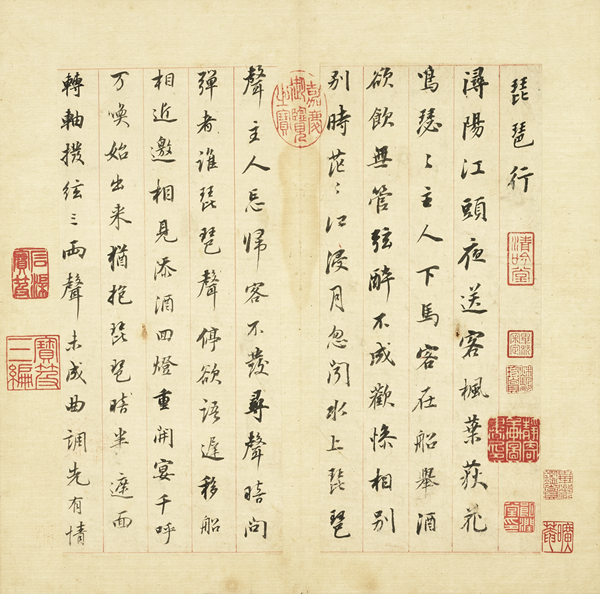 琵琶行
潯陽江頭夜送客楓葉荻花
鳴瑟〻主人下馬客在船舉酒
欲飲無管弦醉不成歡慘相別
別時茫〻江浸月忽聞水上琵琶
聲主人忘歸客不發尋聲暗問
彈者誰琵琶聲停欲語遲移船
相近邀相見添酒回燈重開宴千呼
万喚始出来猶抱琵琶暗半遮面
轉軸撥弦三兩聲未成曲調先有情
嘉慶御覽之寶
清吟堂
石渠寶笈
寶笈三編